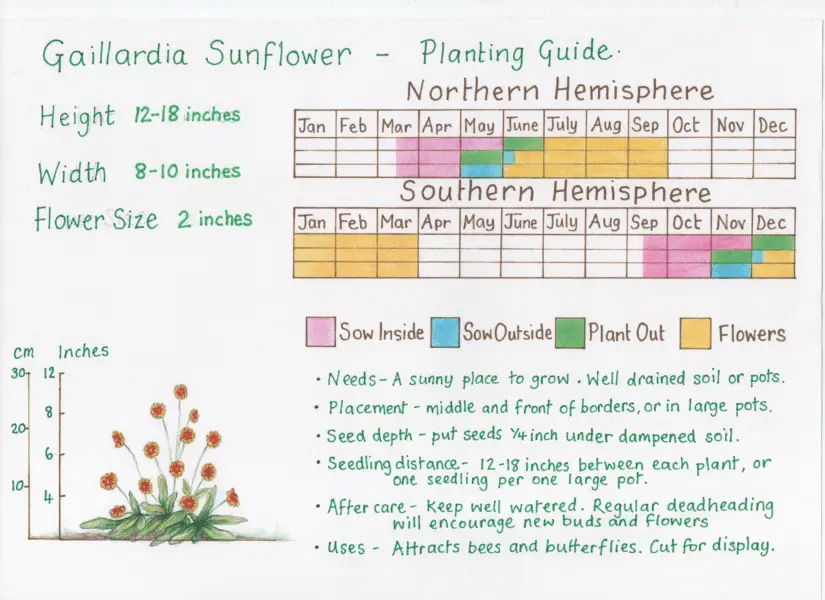 Gaillardia Sunflower - Planting Guide.
Height 12-18 inches
Width 8-10 inches
Flower Size 2 inches
Northern Hemisphere
Jan Feb Mar Apr May June July Aug Sep Oct Nov Dec
Southern Hemisphere
Jan Feb Mar Apr May June July Aug Sep Oct Nov Dec
Sow Inside Sow Outside Plant Out Flowers
cm Inches
30 12
8
20
6
10
4
• Needs - A sunny place to grow. Well drained soil or pots.
• Placement - middle and front of borders, or in large pots.
• Seed depth - put seeds 1/4 inch under dampened soil.
• Seedling distance - 12-18 inches between each plant, or
one seedling per one large pot.
• After care - Keep well watered. Regular deadheading
will encourage new buds and flowers
• Uses - Attracts bees and butterflies. Cut for display.